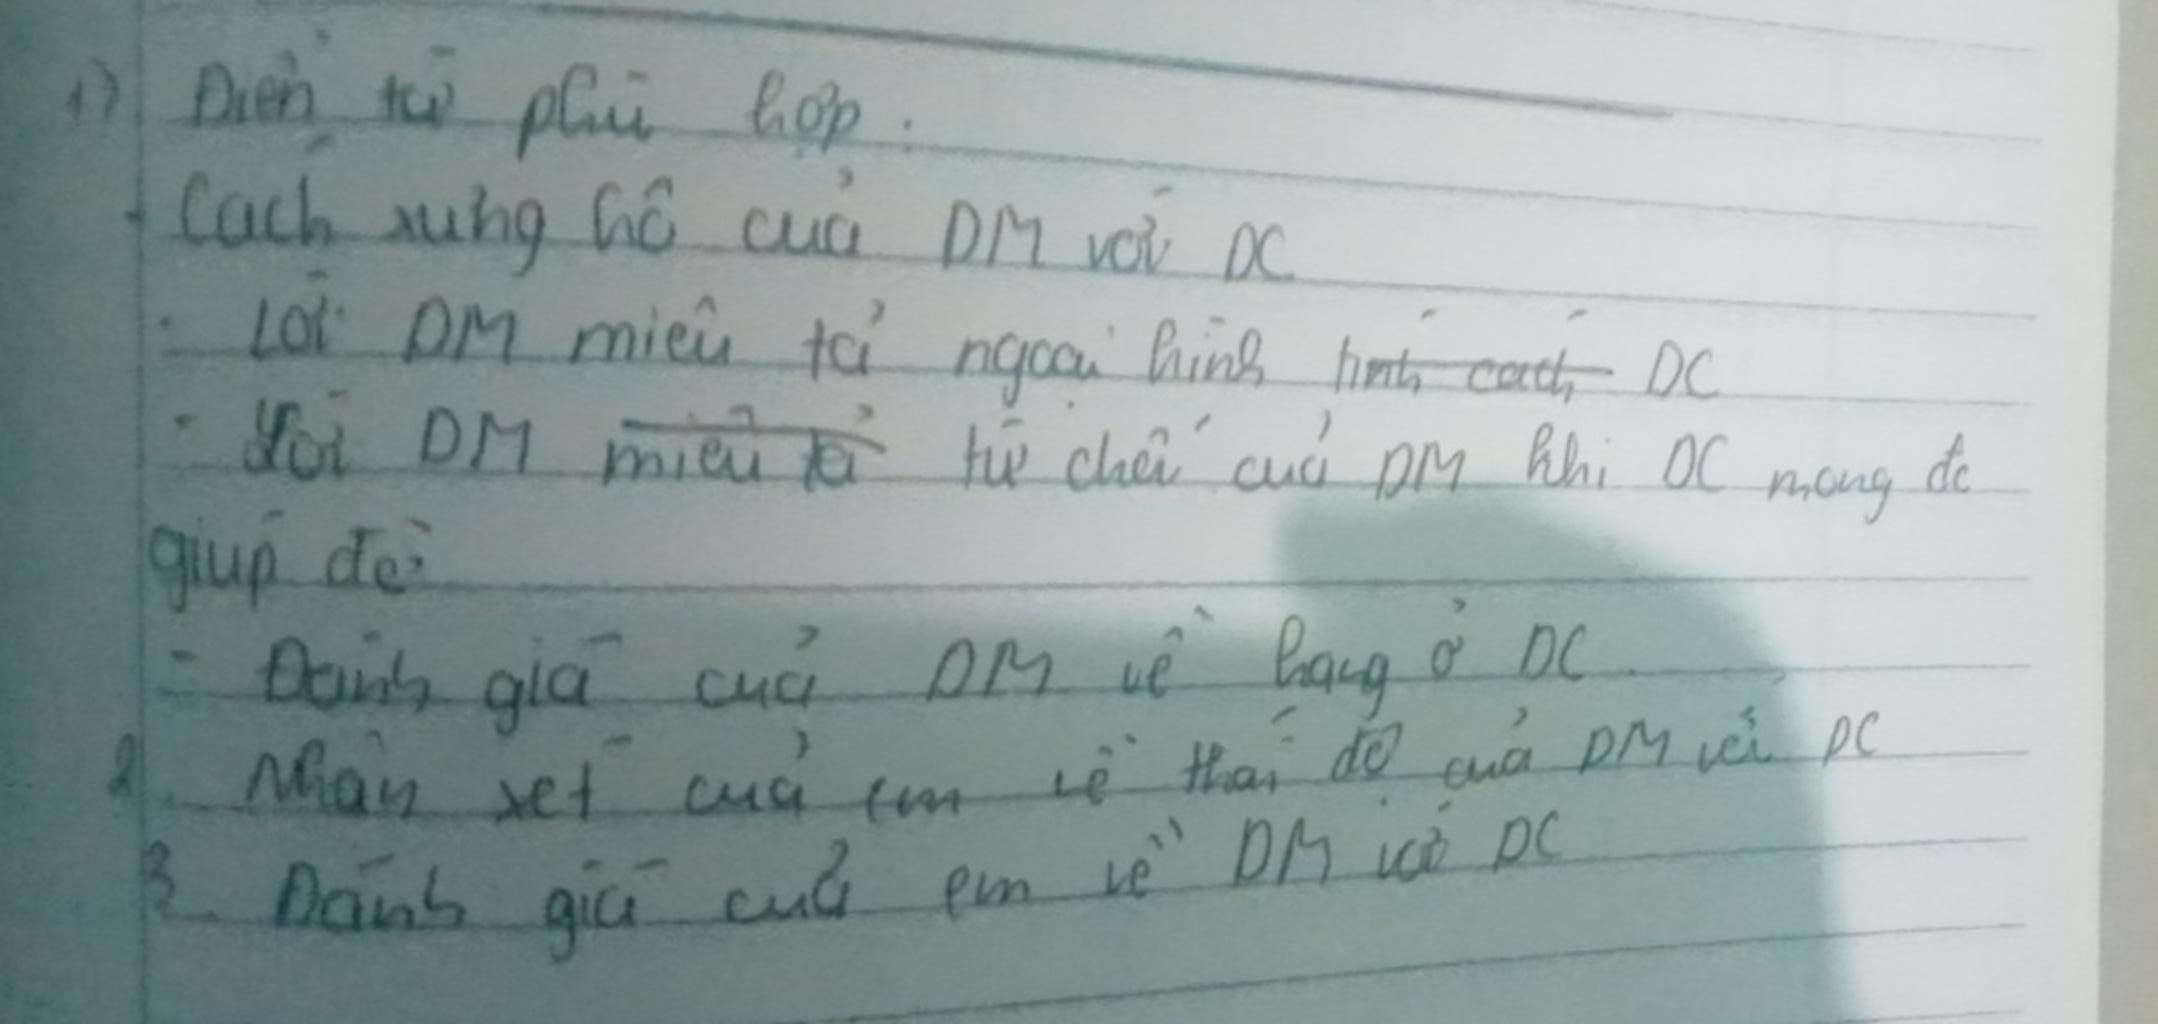 1) Điền từ phù hợp.
- Cách xưng hô của DM với DC
- Lời DM miêu tả ngoại hình tính cách DC
- Lời DM miêu tả từ chối của DM khi DC mong đc
giúp đỡ
- Đánh giá của DM về hang ở DC
2. Nhận xét của em về thái độ của DM với DC
3. Đánh giá của em về DM với DC